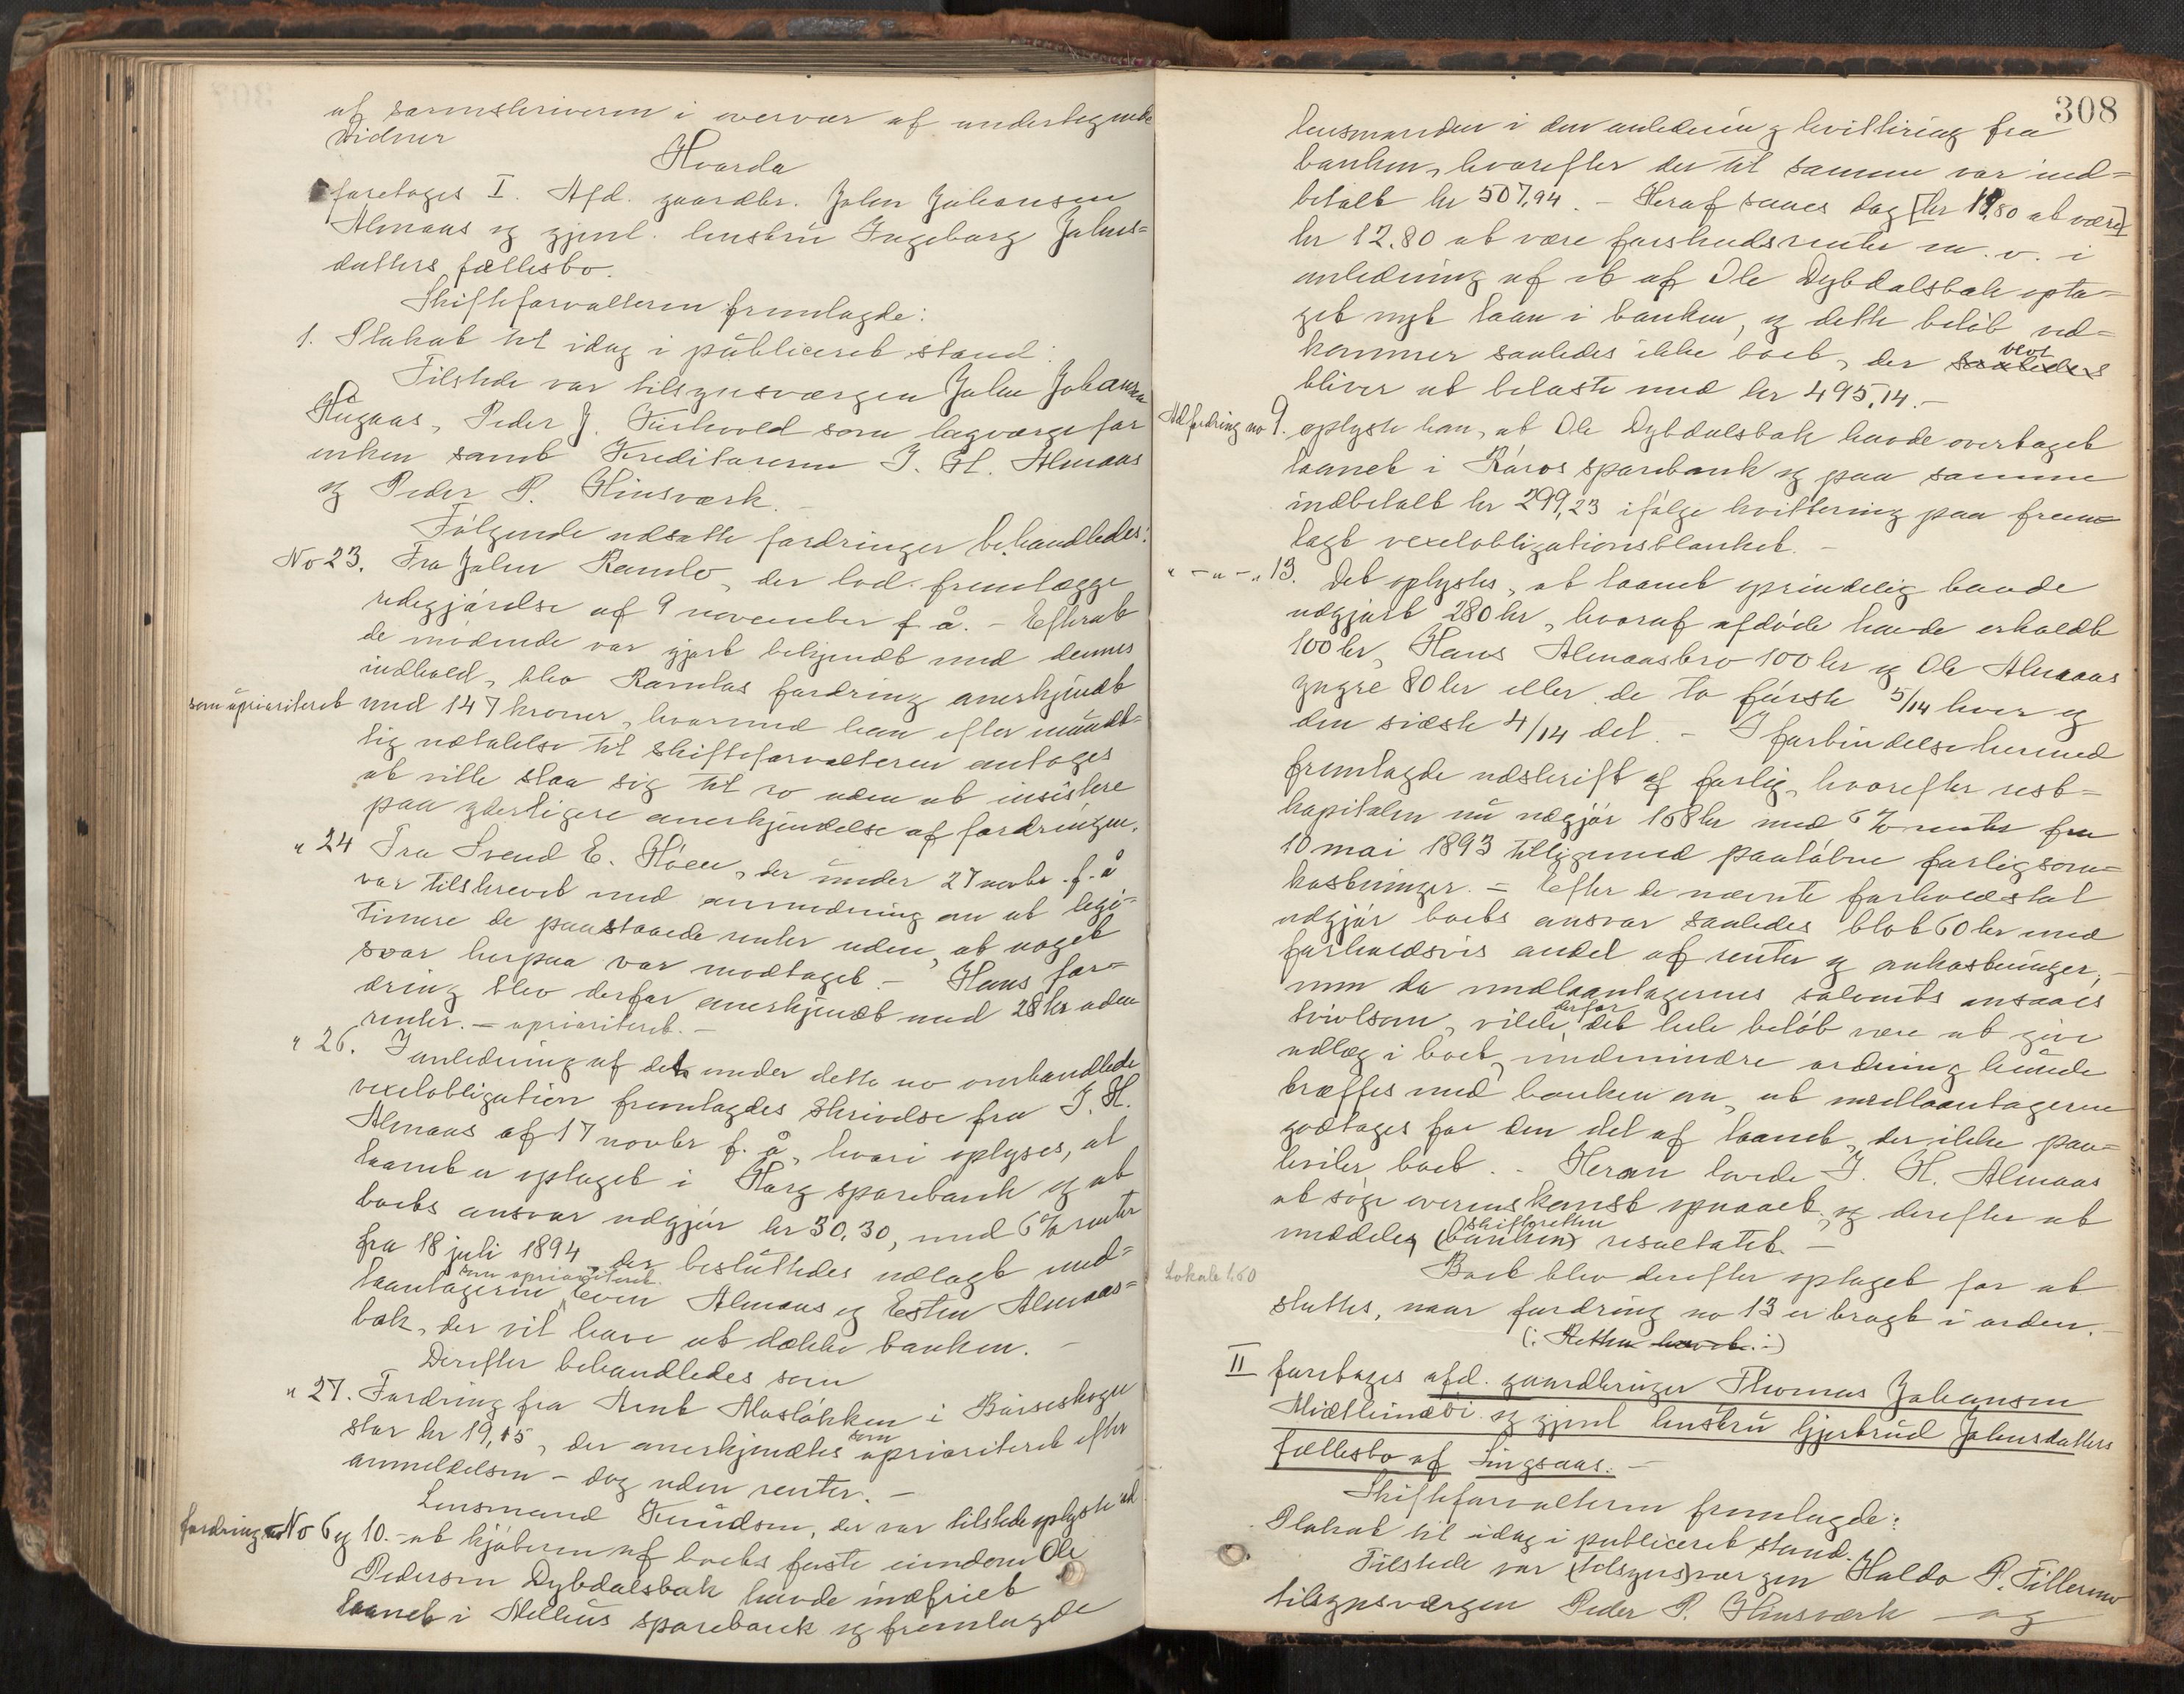 af sorenskriveren i overvær af undertegnede
Vidner
Hvorda
foretoges I. Afd. gaardbr. John Johansen
Almaas og gjenl. hustru Ingeborg Johns=
datters fællesbo.
Skifteforvalteren fremlagde:
1. Plakat til idag i publiceret stand.
Tilstede var tilsynsværgen John Johansen
Hugaas, Peder J. Kirkvold som lagværge for
enken samt Kreditorerne J. H. Almaas
og Peder P. Hinsværk.
Følgende udsatte fordringer behandledes:
No 23. Fra John Ramlo, der lod fremlægge
redegjørelse af 9 november f. å. – Efterat
de mødende var gjort bekjendt med dennes
indhold, blev Ramlos fordring anerkjendt
som uprioriteret med 147 kroner, hvormed han efter mundt=
lig udtalelse til skifteforvalteren antoges
at ville slaa sig til ro uden at insistere
paa yderligere anerkjendelse af fordringen.
" 24 Fra Svend E. Høen, der under 27 novbr. f. å
var tilskrevet med anmodning om at legi=
timere de paastaaede renter uden, at noget
svar herpaa var modtaget. – Hans for=
dring blev derfor anerkjendt med 28 kr uden
renter. – uprioriteret. –
" 26. I anledning af det under dette no omhandlede
vexelobligation fremlagdes skrivelse fra J. H.
Almaas af 17 novbr f. å, hvori oplyses, at
laanet er optaget i Horg sparebank og at
boets ansvar udgjør kr 30,30, med 6% renter
fra 18 juli 1894, der besluttedes udlagt med=
som uprioriteret
laantagerne Even Almaas og Esten Almaas=
bak, der vil have at dække banken. –
Derefter behandledes som
" 27. Fordring fra Arnt Mosløkken i Børseskogn
som
stor kr 19,15, der anerkjendtes uprioriteret efter
anmeldelsen – dog uden renter. –
Lensmand Knudsen, der var tilstede oplyste ad
fordring No 6 og 10. – at kjøberen af boets faste eiendom Ole
Pedersen Dybdalsbak havde indfriet
laanet i Melhus sparebank og fremlagde
308
lensmanden i den anledning kvittering fra
banken, hvorefter der til samme var ind=
betalt kr 507,94. – Heraf saaes dog [kr 19,80 at være]
kr 12.80 at være forskudsrente m. v. i
anledning af et af Ole Dybdalsbak opta=
get nyt laan i banken, og dette beløb ved=
kommer saaledes ikke boet, der saaledes
blot
bliver at belaste med kr 495,14. –
Ad fordring no 9. oplyste han, at Ole Dybdalsbak havde overtaget
laanet i Røros sparebank og paa samme
indbetalt kr 299,23 ifølge kvittering paa frem=
lagt vexelobligationsblanket. –
" – " – " 13. Det oplystes, at laanet oprindelig havde
udgjort 280 kr, hvoraf afdøde havde erholdt
100 kr, Hans Almaasbro 100 kr og Ole Almaas
yngre 80 kr eller de to første 5/14 hver og
den sidste 4/14 del. – I forbindelse hermed
fremlagde udskrift af forlig, hvorefter rest=
kapitalen nu udgjør 168 kr med 6% rente fra
10 mai 1893 tilligemed paaløbne forligsom=
kostninger. – Efter de nævnte forholdstal
udgjør boets ansvar saaledes blot 60 kr med
forholdsvis andel af renter og omkostninger, –
men da medlaantagernes solvents ansaaes
derfor
tvivlsom, vilde det hele beløb være at give
udlæg i boet, medmindre ordning kunde
træffes med banken om, at medlaantagerne
godtages for den del af laanet, der ikke paa=
hviler boet. – Herom lovede J. H. Almaas
at søge overenskomst opnaaet og derefter at
skifteretten
meddele (banken) resultatet. –
Lokale 1.60
Boet blev derefter optaget for at
sluttes, naar fordring no 13 er bragt i orden. –
(: Retten hævet. :)
II foretoges afd. gaardbruger Thomas Johansen
og gjenl hustru Gjertrud Johnsdatters
fællesbo af Singsaas. –
Skifteforvalteren fremlagde:
Plakat til idag i publiceret stand.
Tilstede var (tilsyns)værgen Haldo P. Tillermo
tilsynsværgen Peder P. Hinsværk – og